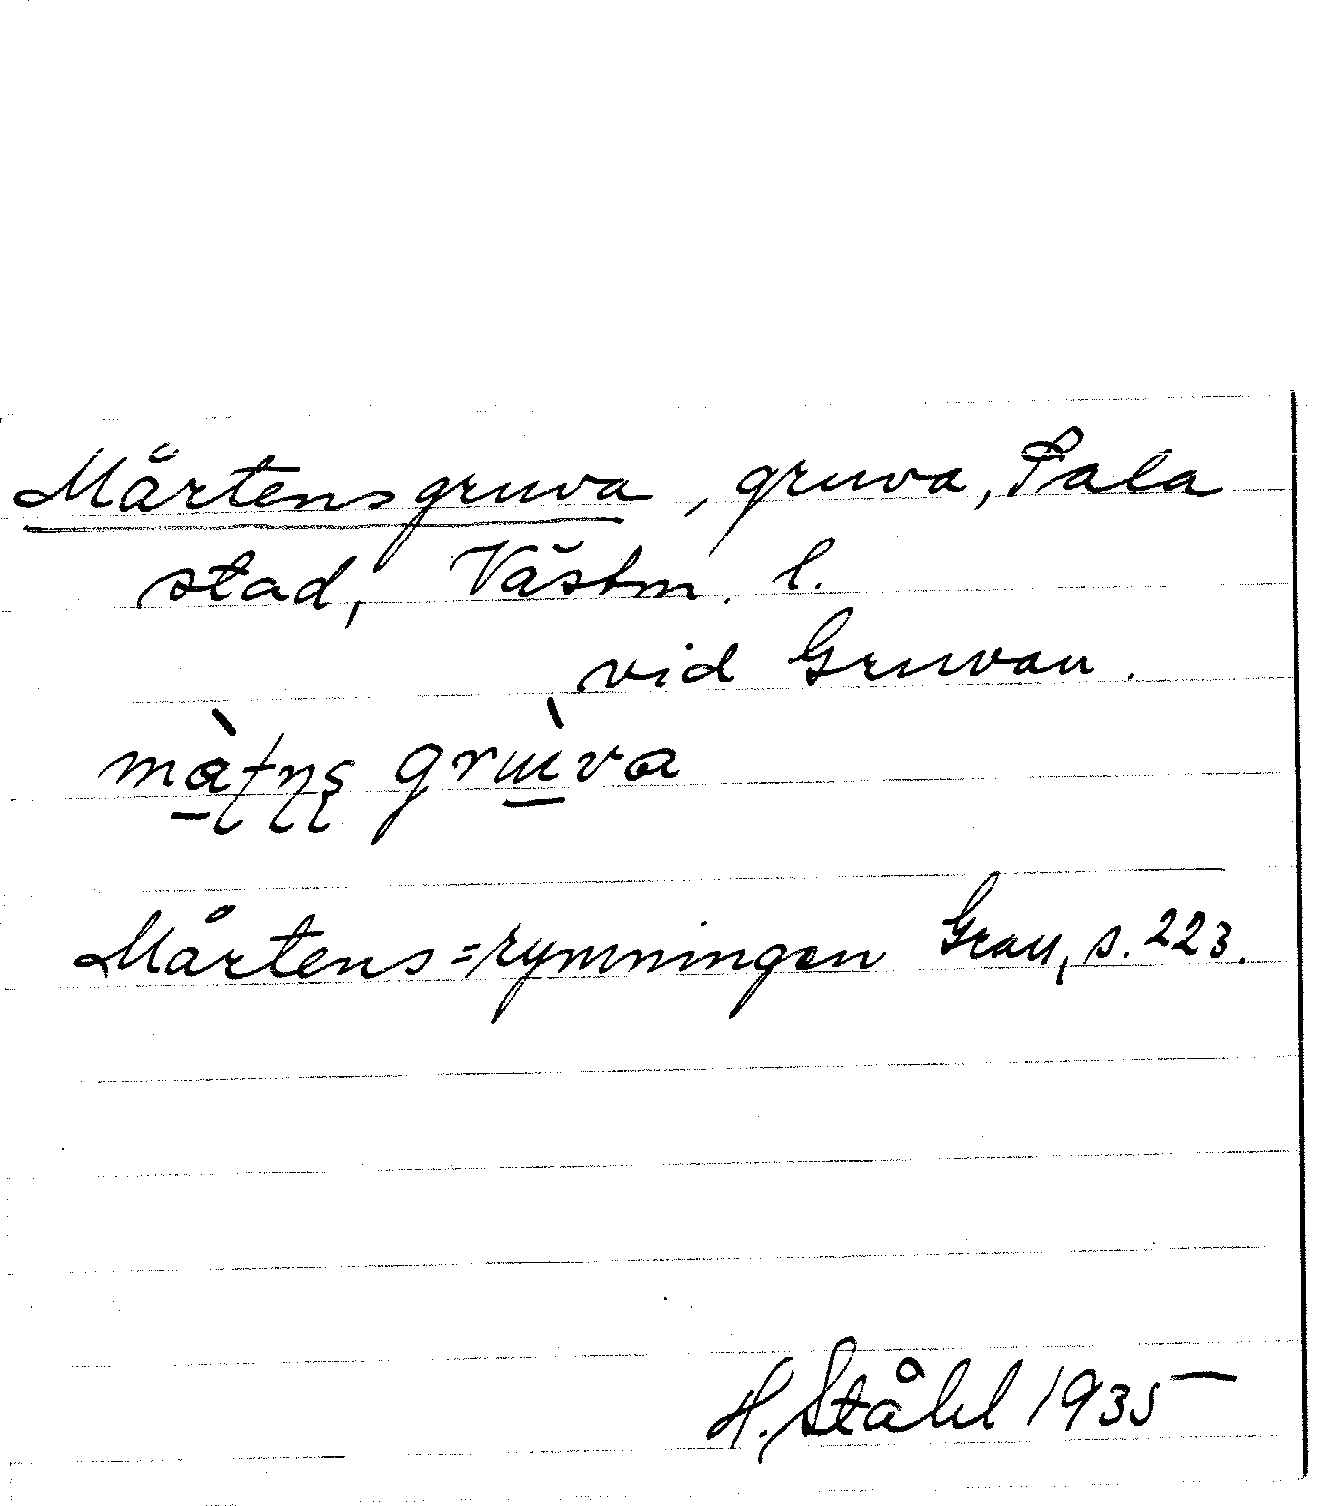 Mårtensgruva, gruva, Sala
stad, Västm. l.
vid Gruvan.
màʈɳʂ grɯ̀va
Mårtens=rymningen Grau, s. 223.
H. Ståhl 1935